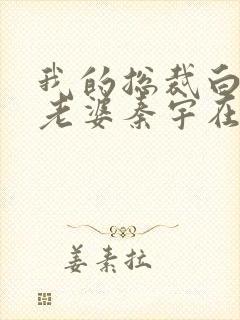 我的总裁白
老婆秦宇在
姜素拉